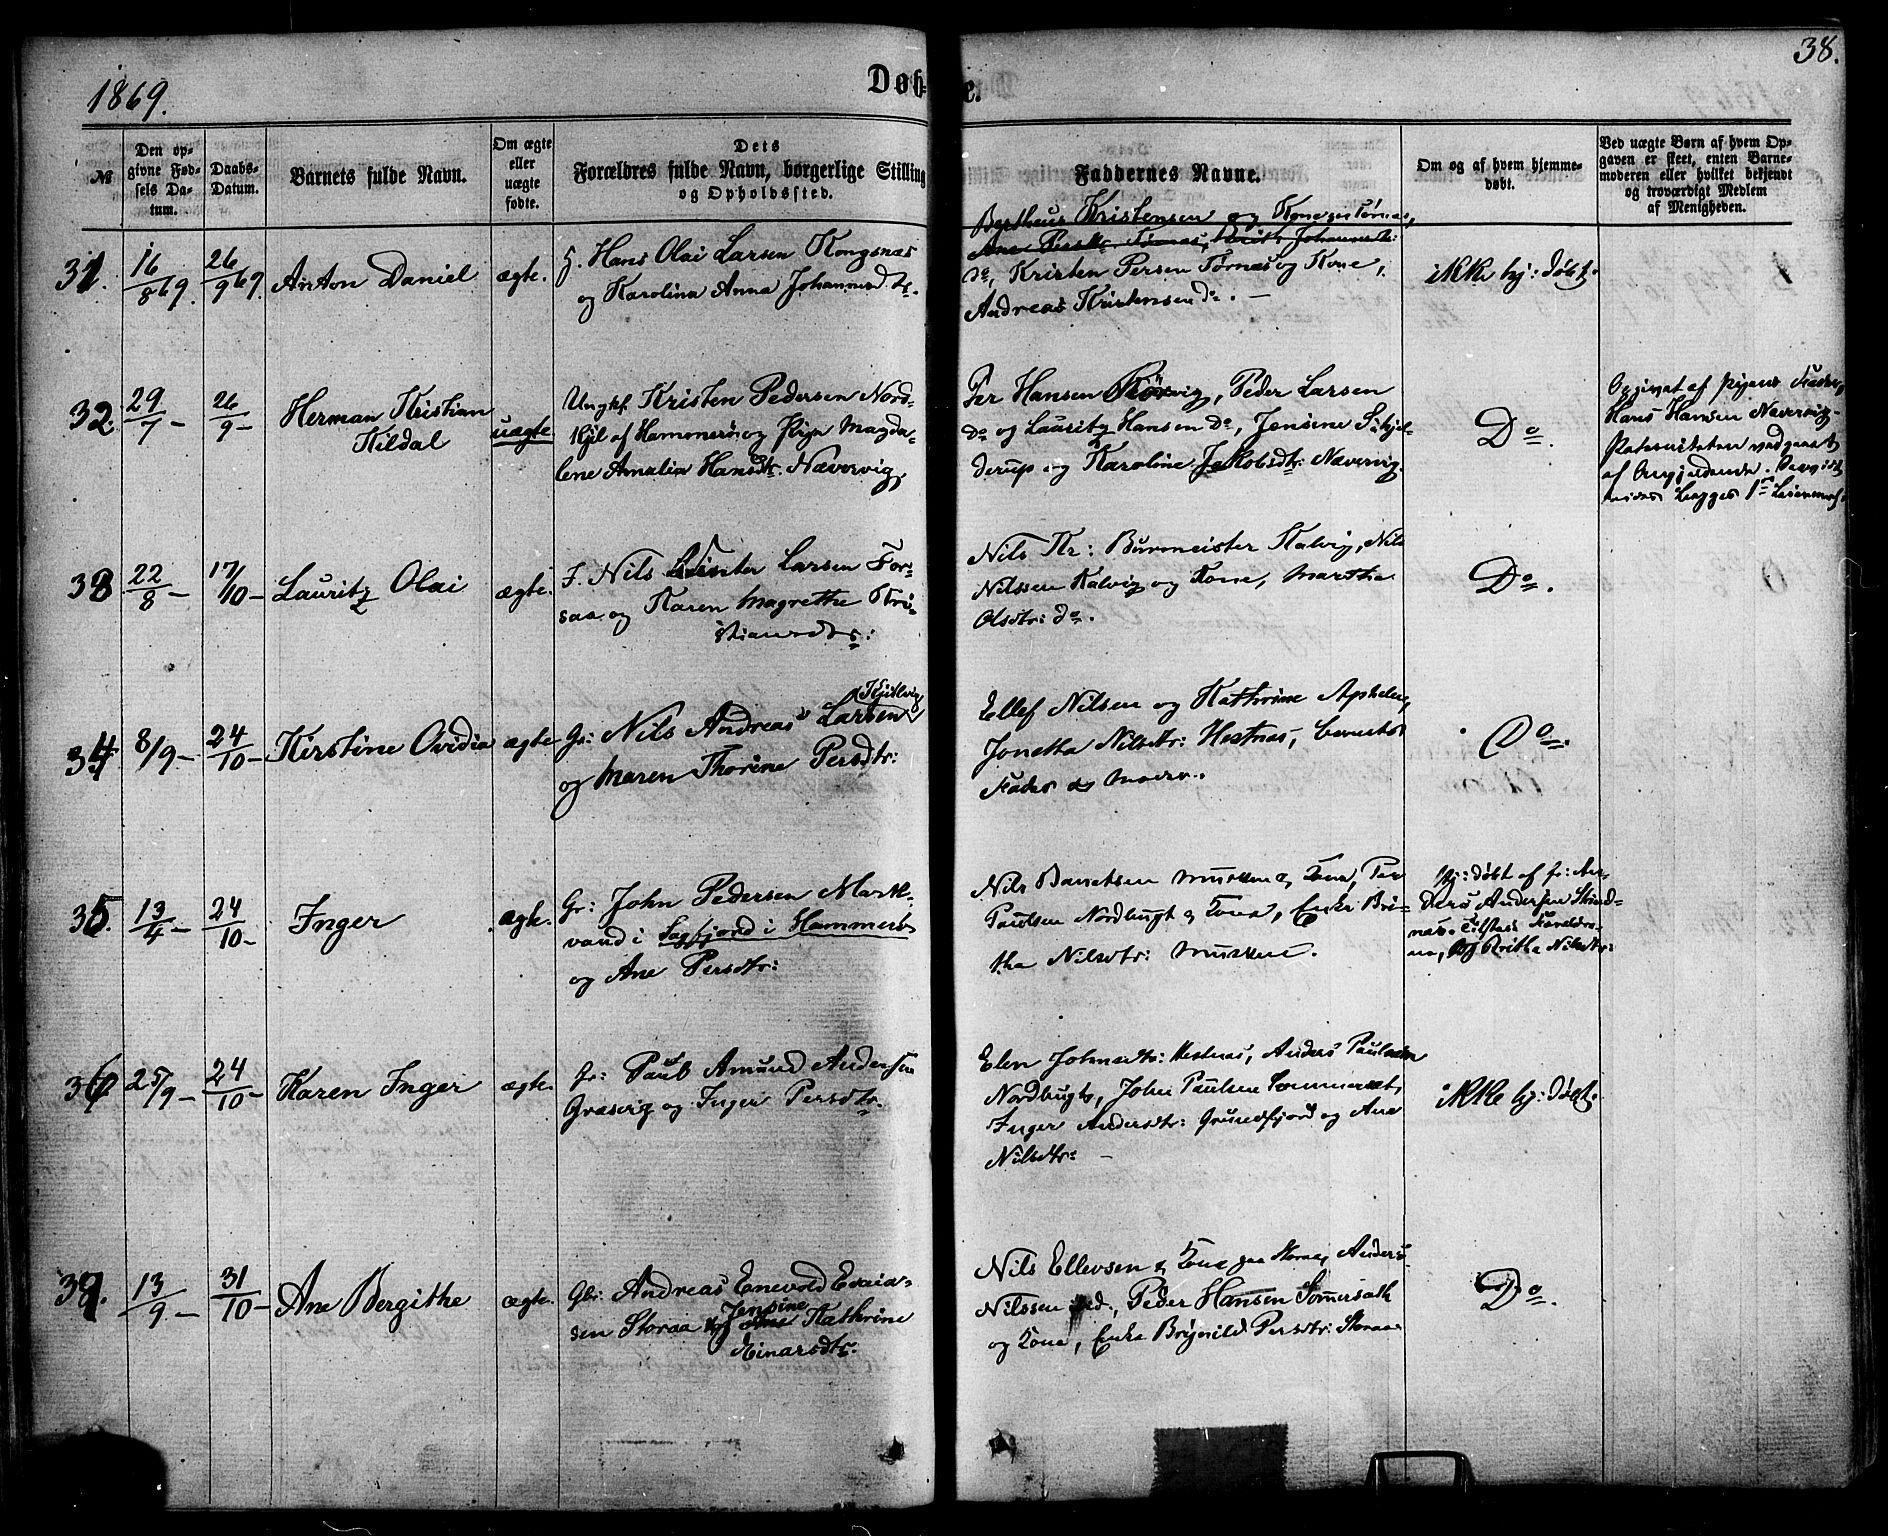 38.
1869.
Døb-
e.
№
Den op-
givne Fød-
sels Da-
tum.
Daabs-
Datum.
Barnets fulde Navn.
Om ægte
eller
uægte
fødte.
Dets
Forældres fulde Navn, borgerlige Stilling
og Opholdssted.
Faddernes Navne.
Om og af hvem hjemme-
døbt.
Ved uægte Børn af hvem Op-
gaven er skeet, enten Barne-
moderen eller hvilket bekjendt
og troværdigt Medlem
af Menigheden.
31. 16/8 69. 26/9 69. Anton Daniel ægte.
Hans Olai Larsen Kongsnæs
og Karolina Anna Johannesd
Kristensen og Kone
do, Kristen Persen Tørnæs og Kone,
Andreas Kristensen do. —
ikke hj: døbt.
32. 29/7 - 26/9 - Herman Kristian
Hildal
uægte
Ungkf. Kristen Pedersen Nord-
kjil af Hammerø og Pige Magda-
lene Amalia Hansdtr. Nævervig,
Per Hansen Rørvig, Peder Larsen
do og Lauritz Hansen do, Jensine Schjel-
derup og Karoline Jakobsdtr: Nævervig.
Do.
Opgivet af Pigens Fader
Hans Hansen Nævervig.
Paterniteten vedgaaet
af Angjældende.
33 22/8 - 17/10 - Lauritz Olai ægte.
F. Nils Winter Larsen For-
saa og Karen Magrethe Kri-
stiansdtr:
Nils Kr: Burmeister Kalvig, Nils
Nilssen Kalvig og Kone, Martha
Olsdtr: do.
Do.
34. 8/9 - 24/10 - Kirstine Ovidia ægte
Gr: Nils Andreas Larsen
og Maren Thorine Persdtr:
Ellef Nilsen og Kathrine
Jonetta Nilsdtr: Hestnæs,
Fader og Moder.
Do.
35. 13/4 - 24/10 - Inger ægte.
Gr: John Pedersen Mark-
vand i Sagfjord i Hammerø
og Ane Persdtr:
Nils Bentsen Musken og Kone, Per
Paulsen Nordbugt og Kone, Enke Bri-
tha Nilsdtr: Musken.
hj: døbt af
Andersen Strand-
næs. Tilstede Forældre-
ne, og Britha Nilsdtr:
36 25/9 - 24/10 - Karen Inger ægte.
Gr: Paul Amund Andersen
Græsvig og Inger Persdtr.
Elen Johnsdtr: Hestnæs, Anders Paulsen
Nordbugt, John Paulsen Sommerset,
Inger Andersdtr: Grundfjord og Ane
Nilsdtr: —
ikke hj: døbt.
37. 13/9 - 31/10 - Ane Bergithe ægte.
Gbr: Andreas Enevold Esaia-
sen Storaa og Jensine Kathrine
Einarsdtr.
Nils Ellevsen og Kone paa Storaa, Anders
Nilssen Peder Hansen Sommersæth
og Kone, Enke Brynild Persdtr: Storaa
Do.